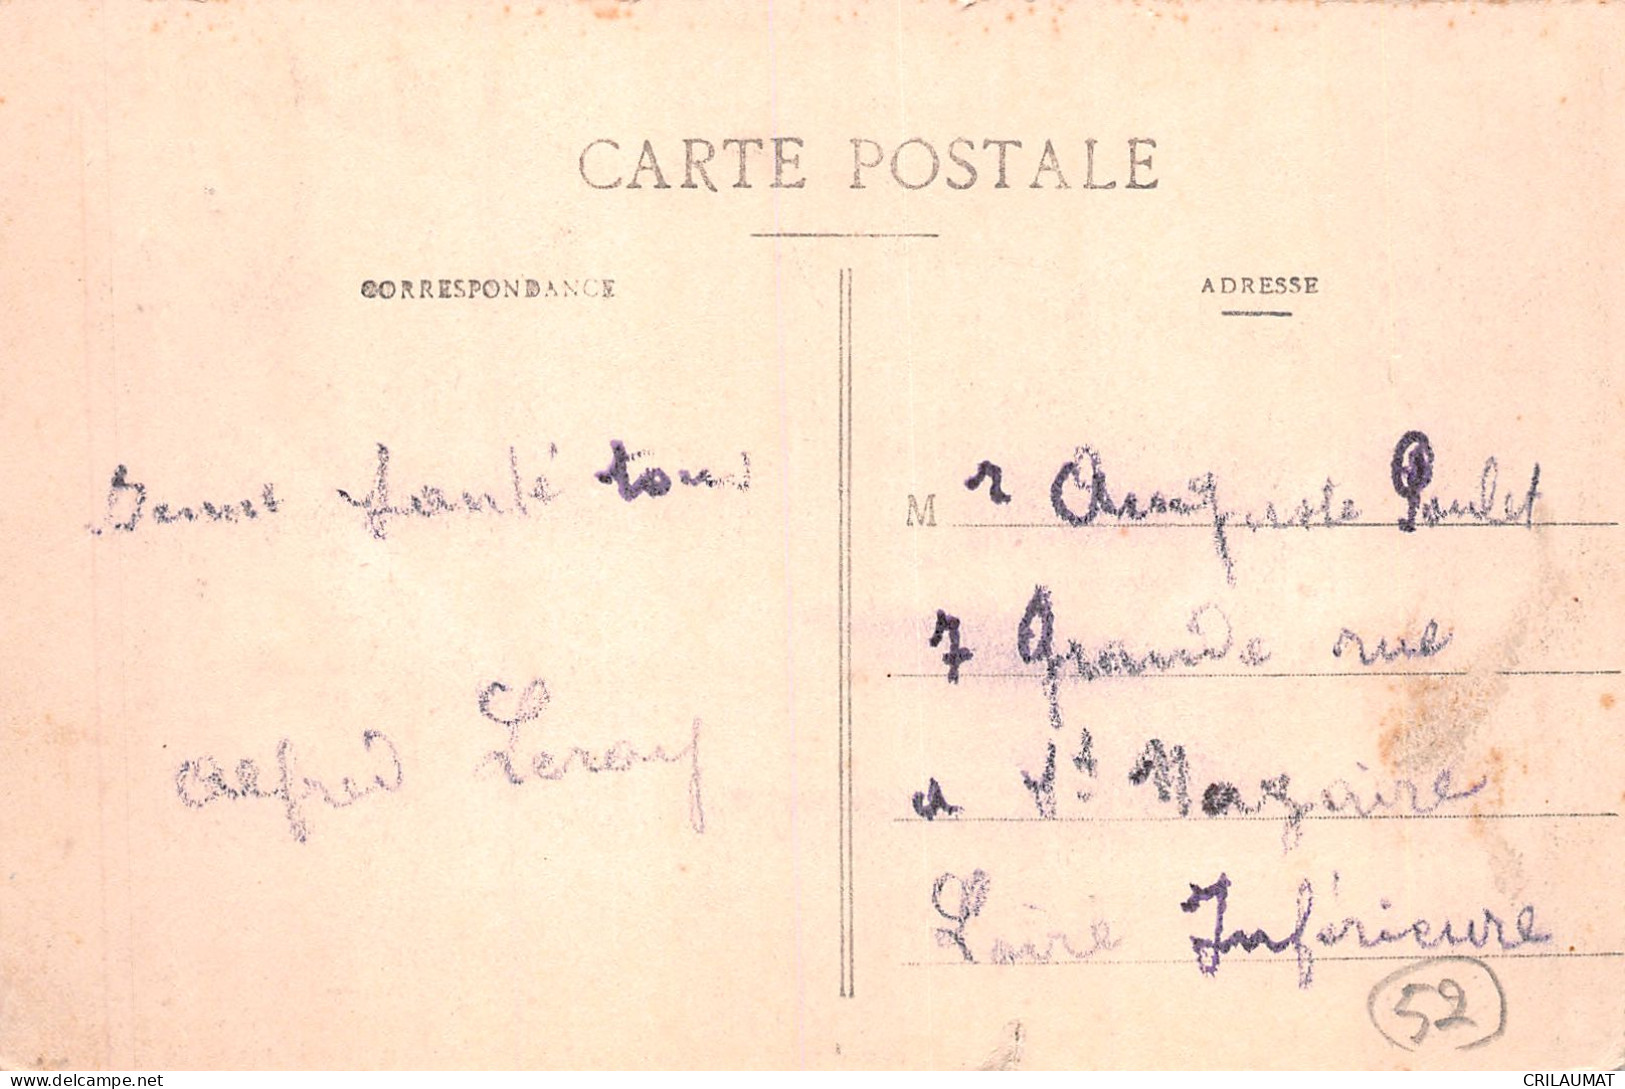 CARTE POSTALE
CORRESPONDANCE
santé tous
Alfred Leroy
ADRESSE
M r Auguste Poulet
7 Grande rue
a St Nazaire
Loire Inférieure
52
CRILAUMAT